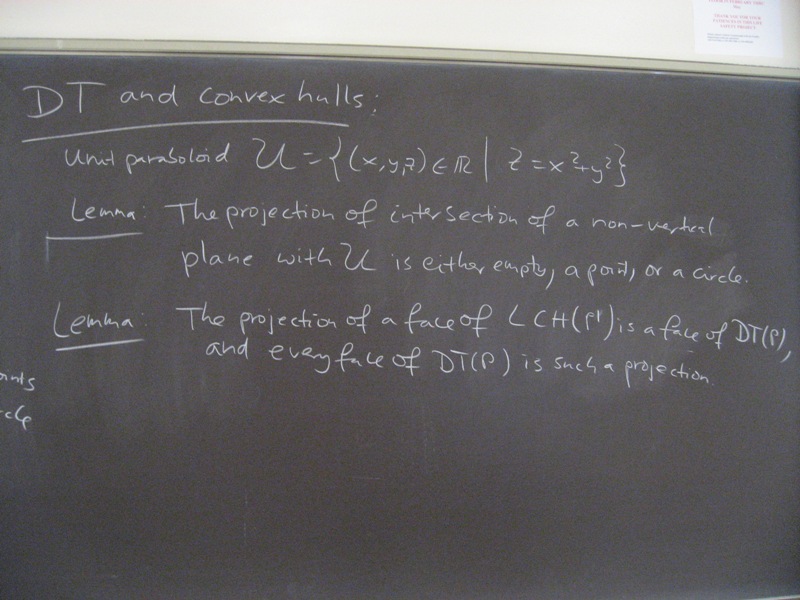 DT and convex hulls:
Unit paraboloid U = {(x,y,z) ∈ ℝ | z = x²+y²}
Lemma: The projection of intersection of a non-vertical
plane with U is either empty, a point, or a circle.
Lemma: The projection of a face of LCH(P') is a face of DT(P),
and every face of DT(P) is such a projection.
THANK YOU FOR YOUR